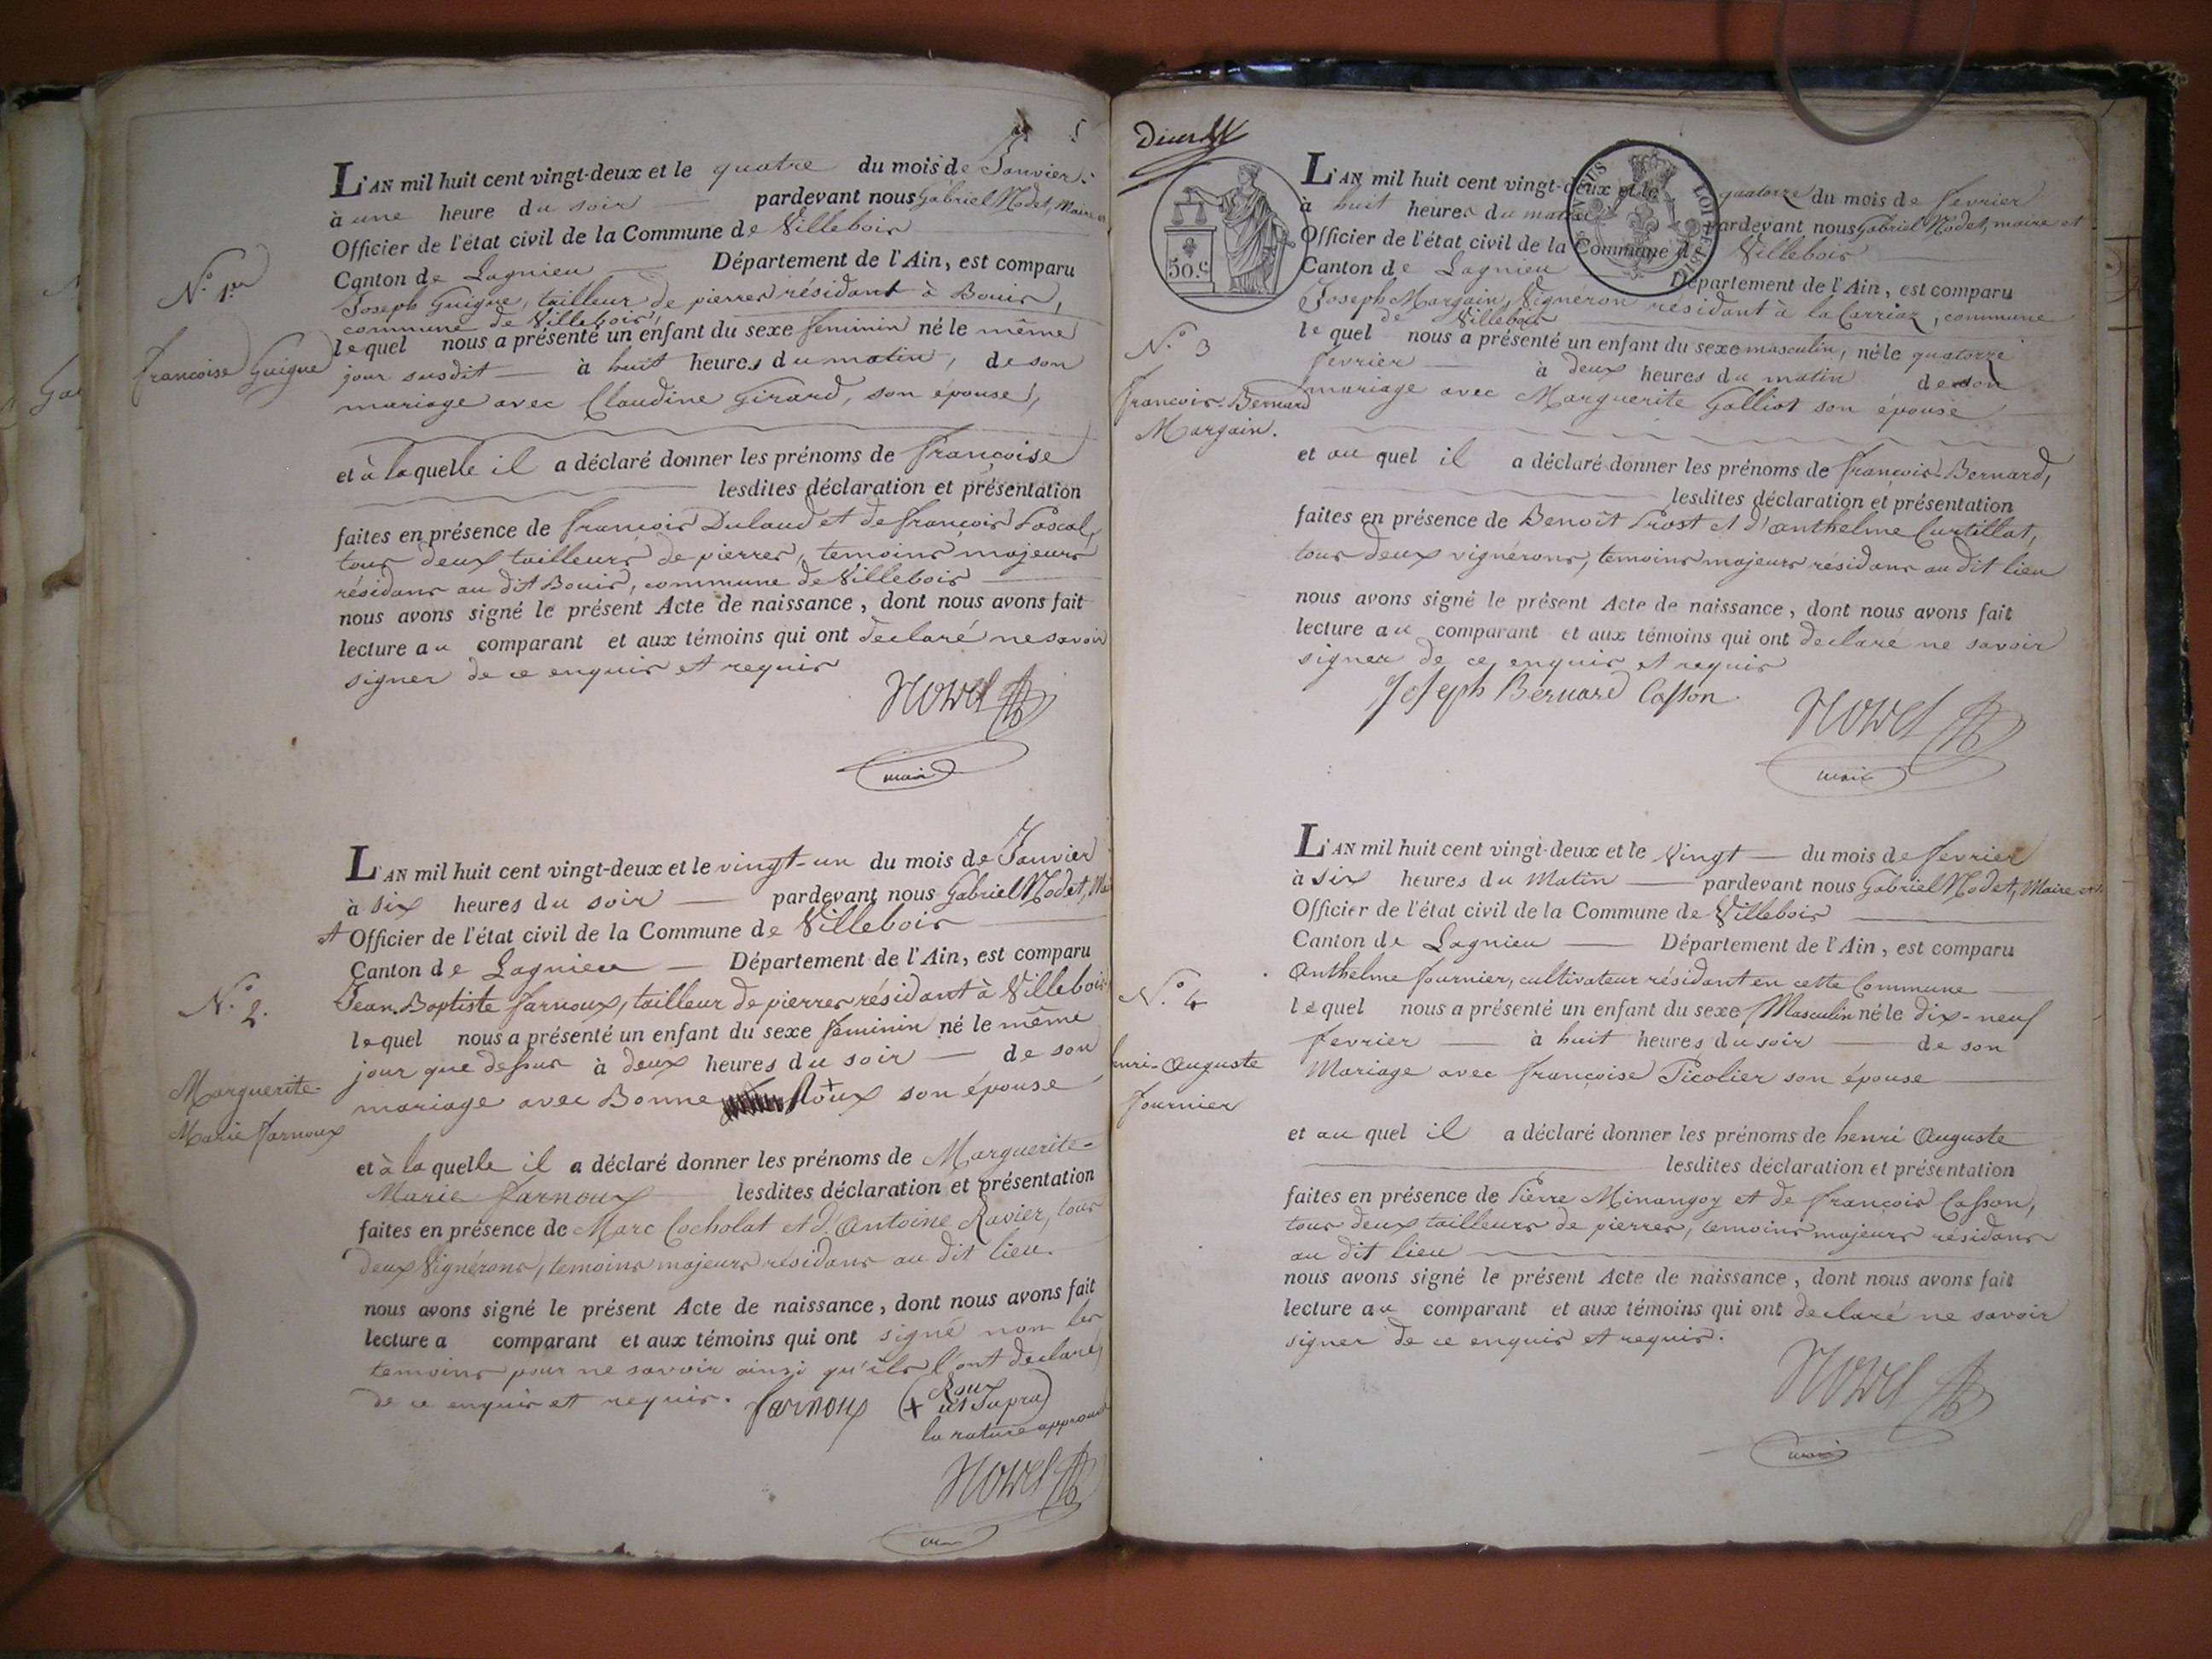 5
L'AN mil huit cent vingt-deux et le quatre du mois de Janvier
à une heure du soir pardevant nous Gabriel Nodet, Maire et
Officier de l'état civil de la Commune de Villebois
Canton de Lagnieu Département de l'Ain, est comparu
Joseph Guigue, tailleur de pierres résidant à Bouis,
commune de Villebois,
lequel nous a présenté un enfant du sexe feminin né le même
jour susdit à huit heures du matin, de son
mariage avec Claudine Girard, son épouse,
et à laquelle il a déclaré donner les prénoms de françoise
lesdites déclaration et présentation
faites en présence de françois Dulaud et de françois Pascal,
tous deux tailleurs de pierres, temoins majeurs
résidans au dit Bouis, commune de Villebois
nous avons signé le présent Acte de naissance, dont nous avons fait
lecture au comparant et aux témoins qui ont declaré ne savoir
signer de ce enquis et requis
maire
N.° 1.er
françoise Guigue
L'AN mil huit cent vingt-deux et le vingt-un du mois de Janvier
à six heures du soir pardevant nous Gabriel Nodet, Mai
et Officier de l'état civil de la Commune de Villebois
Canton de Lagnieu Département de l'Ain, est comparu
Jean-Baptiste farnoux, tailleur de pierres résidant à Villebois
lequel nous a présenté un enfant du sexe féminin né le même
jour que dessus à deux heures du soir de son
mariage avec Bonne + Roux son épouse
et à laquelle il a déclaré donner les prénoms de Marguerite-
Marie farnoux lesdites déclaration et présentation
faites en présence de Marc Cocholat et d'Antoine Ravier, tous
deux Vignérons, temoins majeurs résidans au dit lieu.
nous avons signé le présent Acte de naissance, dont nous avons fait
lecture a comparant et aux témoins qui ont signé non les
temoins pour ne savoir ainsi qu'ils l'ont declaré,
de ce enquis et requis. farnoux (+ Roux
ut Supra)
la rature approuvé
N.° 2.
Marguerite-
Marie farnoux
50.c
LOI DE 18
L'AN mil huit cent vingt-deux et le quatorze du mois de fevrier
à huit heures du matin pardevant nous Gabriel Nodet, maire et
Officier de l'état civil de la Commune de Villebois
Canton de Lagnieu Département de l'Ain, est comparu
Joseph Margain, Vignéron résidant à la Carriaz, commune
de Villebois
lequel nous a présenté un enfant du sexe masculin, né le quatorze
fevrier à deux heures du matin de son
mariage avec Marguerite Galliot son épouse
et au quel il a déclaré donner les prénoms de françois-Bernard,
lesdites déclaration et présentation
faites en présence de Benoît Prost et d'anthelme Curtillat,
tous deux vignérons, temoins majeurs résidans au dit lieu
nous avons signé le présent Acte de naissance, dont nous avons fait
lecture au comparant et aux témoins qui ont declare ne savoir
signer de ce, enquis et requis
Joseph Bernard Casson
maire
N.° 3
françois-Bernard
Margain.
L'AN mil huit cent vingt-deux et le Vingt du mois de fevrier
à six heures du Matin pardevant nous Gabriel Nodet, Maire et
Officier de l'état civil de la Commune de Villebois
Canton de Lagnieu Département de l'Ain, est comparu
Anthelme fournier, cultivateur résidant en cette Commune
lequel nous a présenté un enfant du sexe Masculin né le dix-neuf
fevrier à huit heures du soir de son
Mariage avec françoise Picolier son épouse
et au quel il a déclaré donner les prénoms de henri Auguste
lesdites déclaration et présentation
faites en présence de Pierre Minangoy et de françois Casson,
tous deux tailleurs de pierres, temoins majeurs résidans
au dit lieu
nous avons signé le présent Acte de naissance, dont nous avons fait
lecture au comparant et aux témoins qui ont declaré ne savoir
signer de ce enquis et requis.
N.° 4
enri-Auguste
fournier